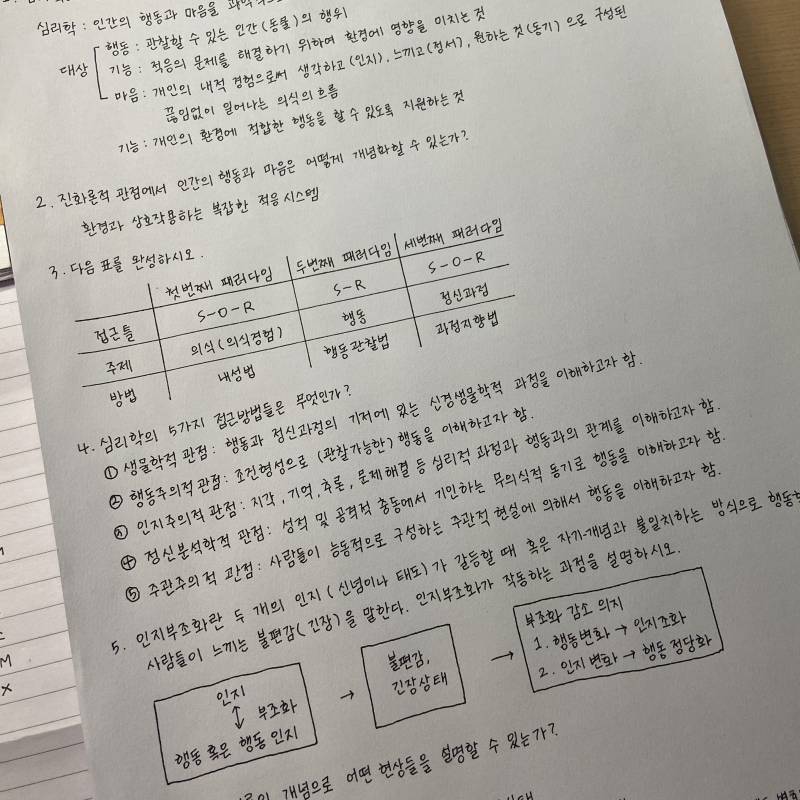 심리학 : 인간의 행동과 마음을
대상 행동 : 관찰할 수 있는 인간(동물)의 행위
기능 : 적응의 문제를 해결하기 위하여 환경에 영향을 미치는 것
마음 : 개인의 내적 경험으로써 생각하고(인지), 느끼고(정서), 원하는 것(동기) 으로 구성된
끊임없이 일어나는 의식의 흐름
기능 : 개인의 환경에 적합한 행동을 할 수 있도록 지원하는 것
2. 진화론적 관점에서 인간의 행동과 마음은 어떻게 개념화할 수 있는가?
환경과 상호작용하는 복잡한 적응 시스템
3. 다음 표를 완성하시오.
첫번째 패러다임 두번째 패러다임 세번째 패러다임
접근틀 S-O-R S-R S-O-R
주제 의식(의식경험) 행동 정신과정
방법 내성법 행동관찰법 과정지향법
4. 심리학의 5가지 접근방법들은 무엇인가?
① 생물학적 관점 : 행동과 정신과정의 기저에 있는 신경생물학적 과정을 이해하고자 함.
② 행동주의적 관점 : 조건형성으로 (관찰가능한) 행동을 이해하고자 함.
③ 인지주의적 관점 : 지각, 기억, 추론, 문제해결 등 심리적 과정과 행동과의 관계를 이해하고자 함.
④ 정신분석학적 관점 : 성적 및 공격적 충동에서 기인하는 무의식적 동기로 행동을 이해하고자 함.
⑤ 주관주의적 관점 : 사람들이 능동적으로 구성하는 주관적 현실에 의해서 행동을 이해하고자 함.
5. 인지부조화란 두 개의 인지(신념이나 태도)가 갈등할 때 혹은 자기-개념과 불일치하는 방식으로
사람들이 느끼는 불편감(긴장)을 말한다. 인지부조화가 작동하는 과정을 설명하시오.
인지
↕ 부조화
행동 혹은 행동 인지
→
불편감,
긴장상태
→
부조화 감소 의지
1. 행동변화 → 인지조화
2. 인지 변화 → 행동 정당화
개념으로 어떤 현상들을 설명할 수 있는가?